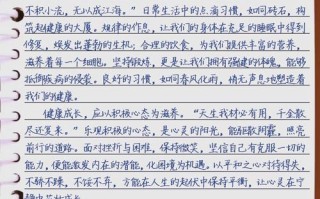 不积小流，无以成江海。”日常生活中的点滴习惯，如同砖石，构
筑起健康的大厦。规律的作息，让我们的身体在充足的睡眠中得到
修复，焕发出蓬勃的生机；合理的饮食，为我们提供丰富的营养，
滋养着每一个细胞；坚持锻炼，更是让我们拥有强健的体魄，能够
抵御疾病的侵袭。良好的习惯，如同春风化雨，悄无声息地塑造着
我们的健康。
健康成长，应以积极心态为滋养。“天生我材必有用，千金散
尽还复来。”乐观积极的心态，是心灵的阳光，能驱散阴霾，照亮
前行的道路。面对挫折与困难，保持微笑，坚信自己有克服一切的
能力，便能激发内在的潜能，化困境为机遇。以平和之心对待得失，
不骄不躁，不馁不弃，方能在人生的起伏中保持平衡，让心灵在宁